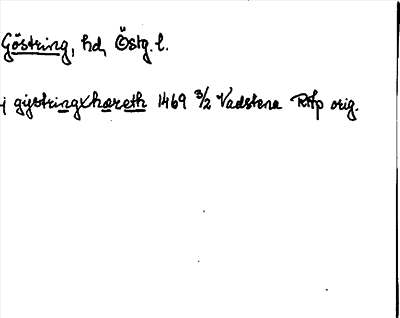 Göstring, hd, Östg. l.
j gystringxhæreth 1469 3/2 Vadstena RAp orig.